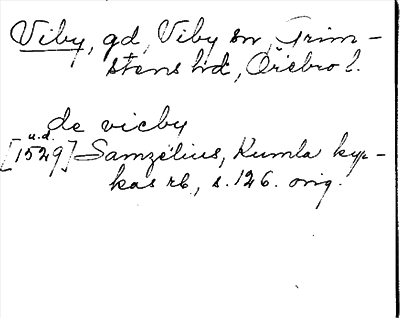 Viby, gd, Viby sn, Grim-
stens hd, Örebro l.
de vicby
u.d.
[1529] Samzelius, Kumla kyr-
kas rb, s. 126. orig.